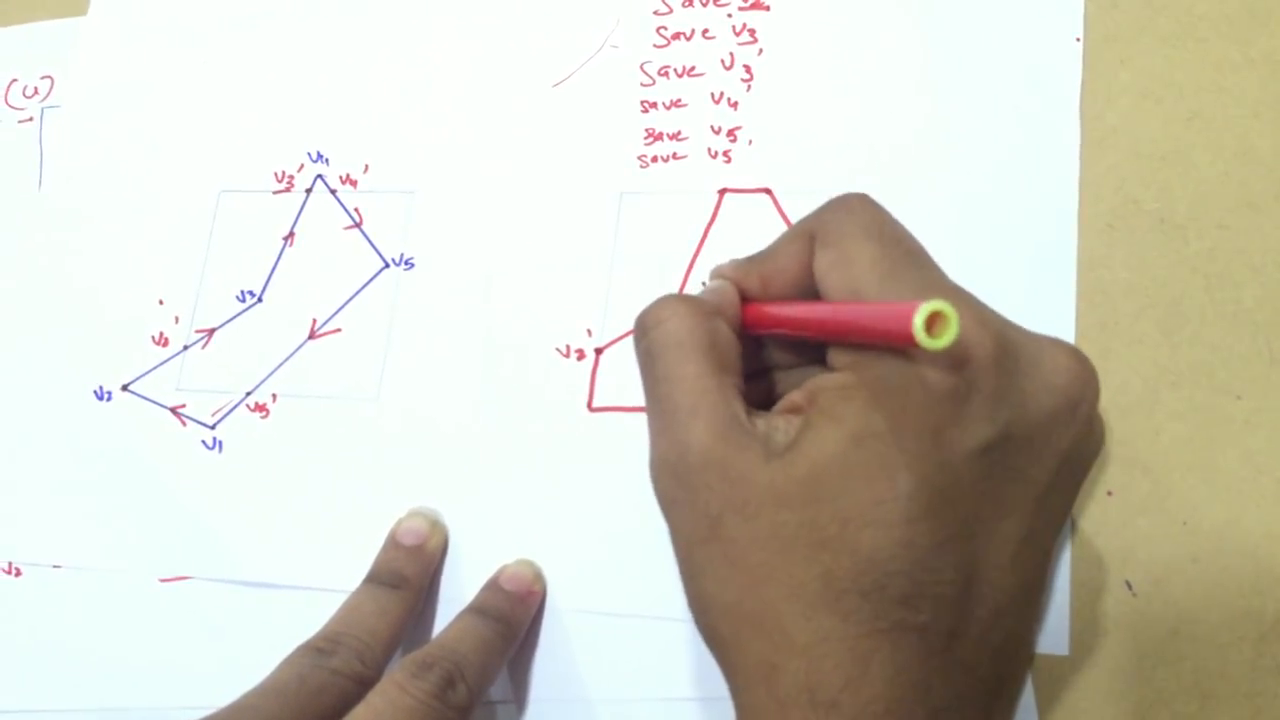 save v2
(a)
save v3
save v3'
save v4'
save v5,
save v5'
v4
v3' v4'
v5
v3
v2'
v2'
v2
v5'
v1
v2